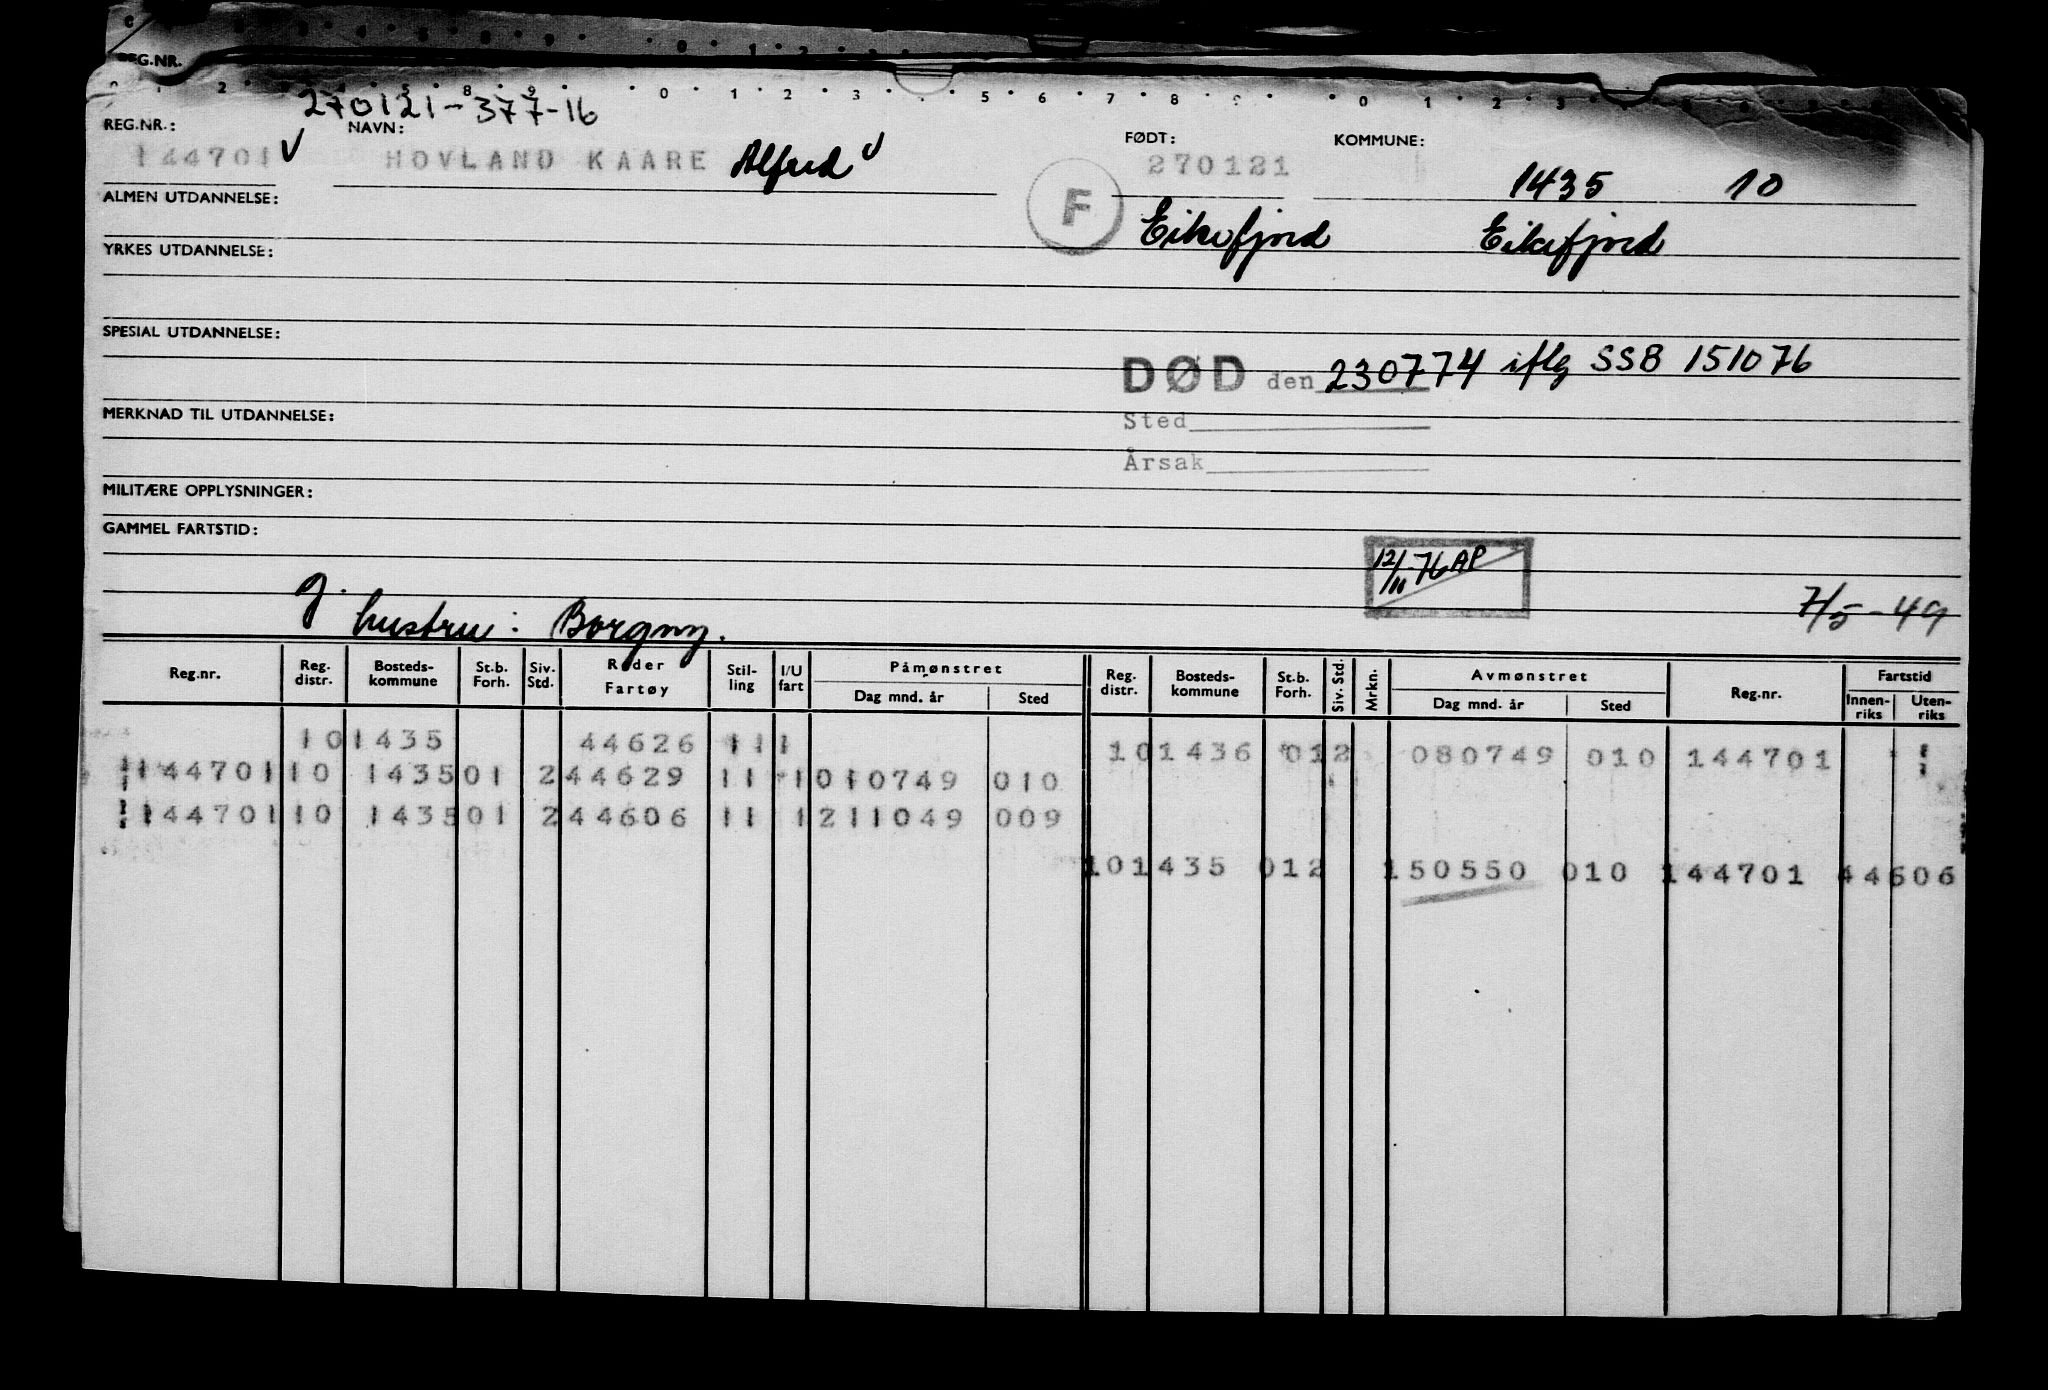 REG.NR.
270121-377-16
REG.NR.: NAVN: FØDT: KOMMUNE:
144701 HOVLAND KAARE Alfred 270121 1435 10
ALMEN UTDANNELSE: F Eikefjord Eikefjord
YRKES UTDANNELSE:
SPESIAL UTDANNELSE:
DØD den 230774 iflg SSB 151076
MERKNAD TIL UTDANNELSE: Sted
Årsak
MILITÆRE OPPLYSNINGER:
GAMMEL FARTSTID:
12/11-76 AP
g. hustru: Borgny. 7/5-49
Reg.nr. Reg. distr. Bosteds-kommune St.b. Forh. Siv. Std. Reder Fartøy Stil-ling I/U fart Påmønstret Dag mnd. år Sted Reg. distr. Bosteds-kommune St.b. Forh. Siv. Std. Mrkn. Avmønstret Dag mnd. år Sted Reg.nr. Fartstid Innen-riks Uten-riks
10 1435 44626 11 1 10 1436 01 2 080749 010 144701
144701 10 1435 01 2 44629 11 1 010749 010
144701 10 1435 01 2 44606 11 1 211049 009
10 1435 01 2 150550 010 144701 44606